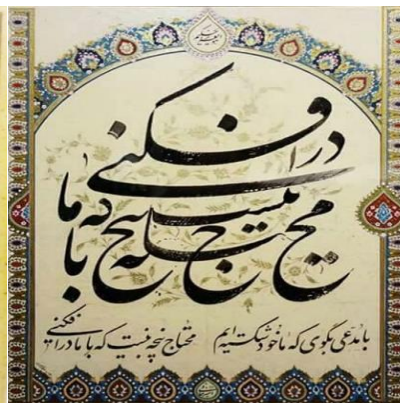 محتاج نیست پنجه که با ما
درافکنی
با مدعی بگوی که ما خود شکسته ایم محتاج پنجه نیست که با ما درافکنی